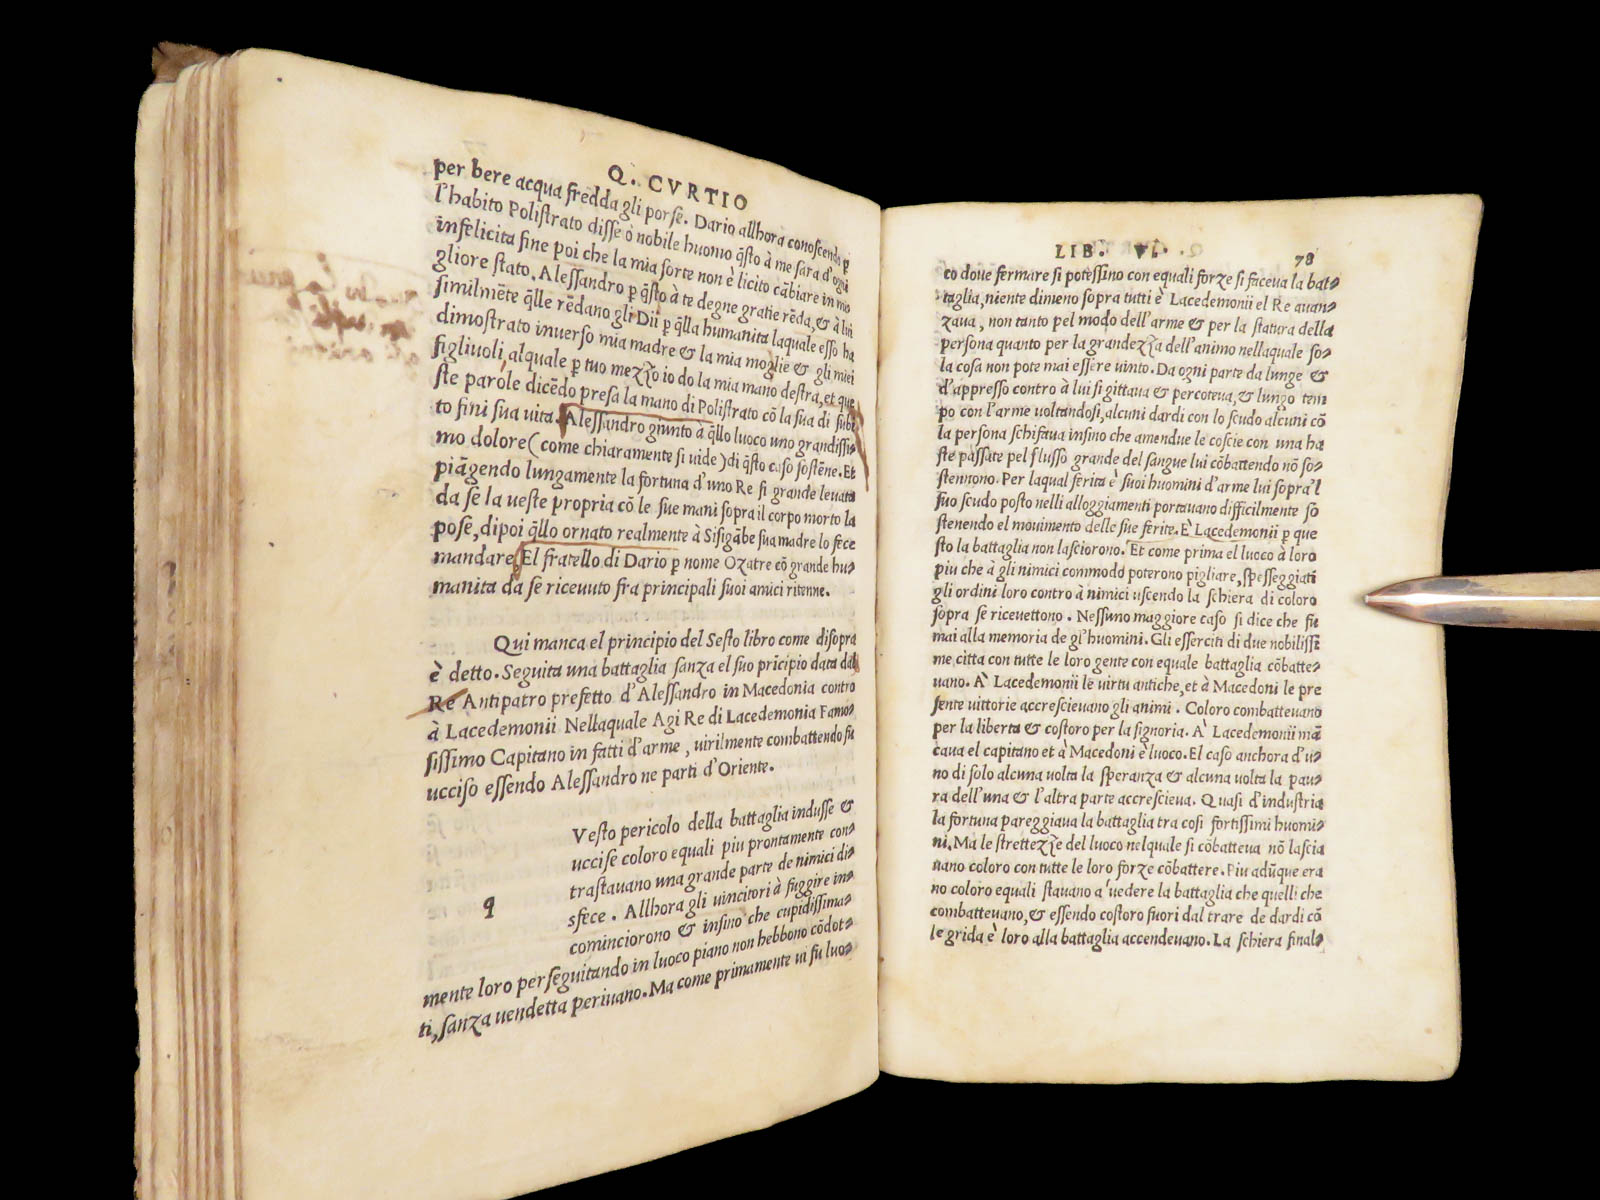 Q. CVRTIO
per bere acqua fredda gli porse. Dario allhora conoscendo ꝑ
l'habito Polistrato disse ò nobile huomo q̃sto à me sara d'ogni
infelicita fine poi che la mia sorte non è licito cãbiare in mio
gliore stato. Alessandro ꝑ q̃sto à te degne gratie rẽda, & à lui
similmẽte q̃lle rẽdano gli Dii ꝑ q̃lla humanita laquale esso ha
dimostrato inuerso mia madre & la mia moglie & gli miei
figliuoli, alquale ꝑ tuo mezzo io do la mia mano destra, et que
ste parole dicẽdo presa la mano di Polistrato cõ la sua di subi
to fini sua uita. Alessandro giunto à q̃llo luoco uno grandissi⸗
mo dolore (come chiaramente si uide) di q̃sto caso sostẽne. Et
piãgendo lungamente la fortuna d'uno Re si grande leuata
da se la ueste propria cõ le sue mani sopra il corpo morto la
pose, dipoi q̃llo ornato realmente à Sisigãbe sua madre lo fece
mandare. El fratello di Dario ꝑ nome Ozatre cõ grande hu⸗
manita da se riceuuto fra principali suoi amici ritenne.
Qui manca el principio del Sesto libro come disopra
è detto. Seguita una battaglia sanza el suo prĩcipio data dal
Re Antipatro prefetto d'Alessandro in Macedonia contro
à Lacedemonii Nellaquale Agi Re di Lacedemonia Famo⸗
sissimo Capitano in fatti d'arme, uirilmente combattendo fu
ucciso essendo Alessandro ne parti d'Oriente.
q
Vesto pericolo della battaglia indusse &
uccise coloro equali piu prontamente con⸗
trastauano una grande parte de nimici di⸗
sfece. Allhora gli uincitori à fuggire in⸗
cominciorono & insino che cupidissima⸗
mente loro perseguitando in luoco piano non hebbono cõdot⸗
ti, sanza uendetta periuano. Ma come primamente ui fu luo⸗
LIB. V. 78
co doue fermare si potessino con equali forze si faceua la bat⸗
taglia, niente dimeno sopra tutti è Lacedemonii el Re auan⸗
zaua, non tanto pel modo dell'arme & per la statura della
persona quanto per la grandezza dell'animo nellaquale so⸗
la cosa non pote mai essere uinto. Da ogni parte da lunge &
d'appresso contro à lui si gittaua & percoteua, & lungo tem
po con l'arme uoltandosi, alcuni dardi con lo scudo alcuni cõ
la persona schifaua insino che amendue le coscie con una ha
ste passate pel flusso grande del sangue lui cõbattendo nõ so⸗
stennono. Per laqual ferita è suoi huomini d'arme lui sopra'l
suo scudo posto nelli alloggiamenti portauano difficilmente so
stenendo el mouimento delle sue ferite. E Lacedemonii ꝑ que
sto la battaglia non lasciorono. Et come prima el luoco à loro
piu che à gli nimici commodo poterono pigliare, spesseggiati
gli ordini loro contro à nimici uscendo la schiera di coloro
sopra se riceuettono. Nessuno maggiore caso si dice che fu
mai alla memoria de gl'huomini. Gli esserciti di due nobilissi
me citta con tutte le loro gente con equale battaglia cõbatte⸗
uano. A Lacedemonii le uirtu antiche, et à Macedoni le pre
sente uittorie accrescieuano gli animi. Coloro combatteuano
per la liberta & costoro per la signoria. A Lacedemonii mã
caua el capitano et à Macedoni è luoco. El caso anchora d'u⸗
no di solo alcuna uolta la speranza & alcuna uolta la pau⸗
ra dell'una & l'altra parte accrescieua. Quasi d'industria
la fortuna pareggiaua la battaglia tra cosi fortissimi huomi⸗
ni. Ma le strettezze del luoco nelquale si cõbatteua nõ lascia
uano coloro con tutte le loro forze cõbattere. Piu adũque era
no coloro equali stauano a uedere la battaglia che quelli che
combatteuano, & essendo costoro fuori dal trare de dardi cõ
le grida è loro alla battaglia accendeuano. La schiera final⸗